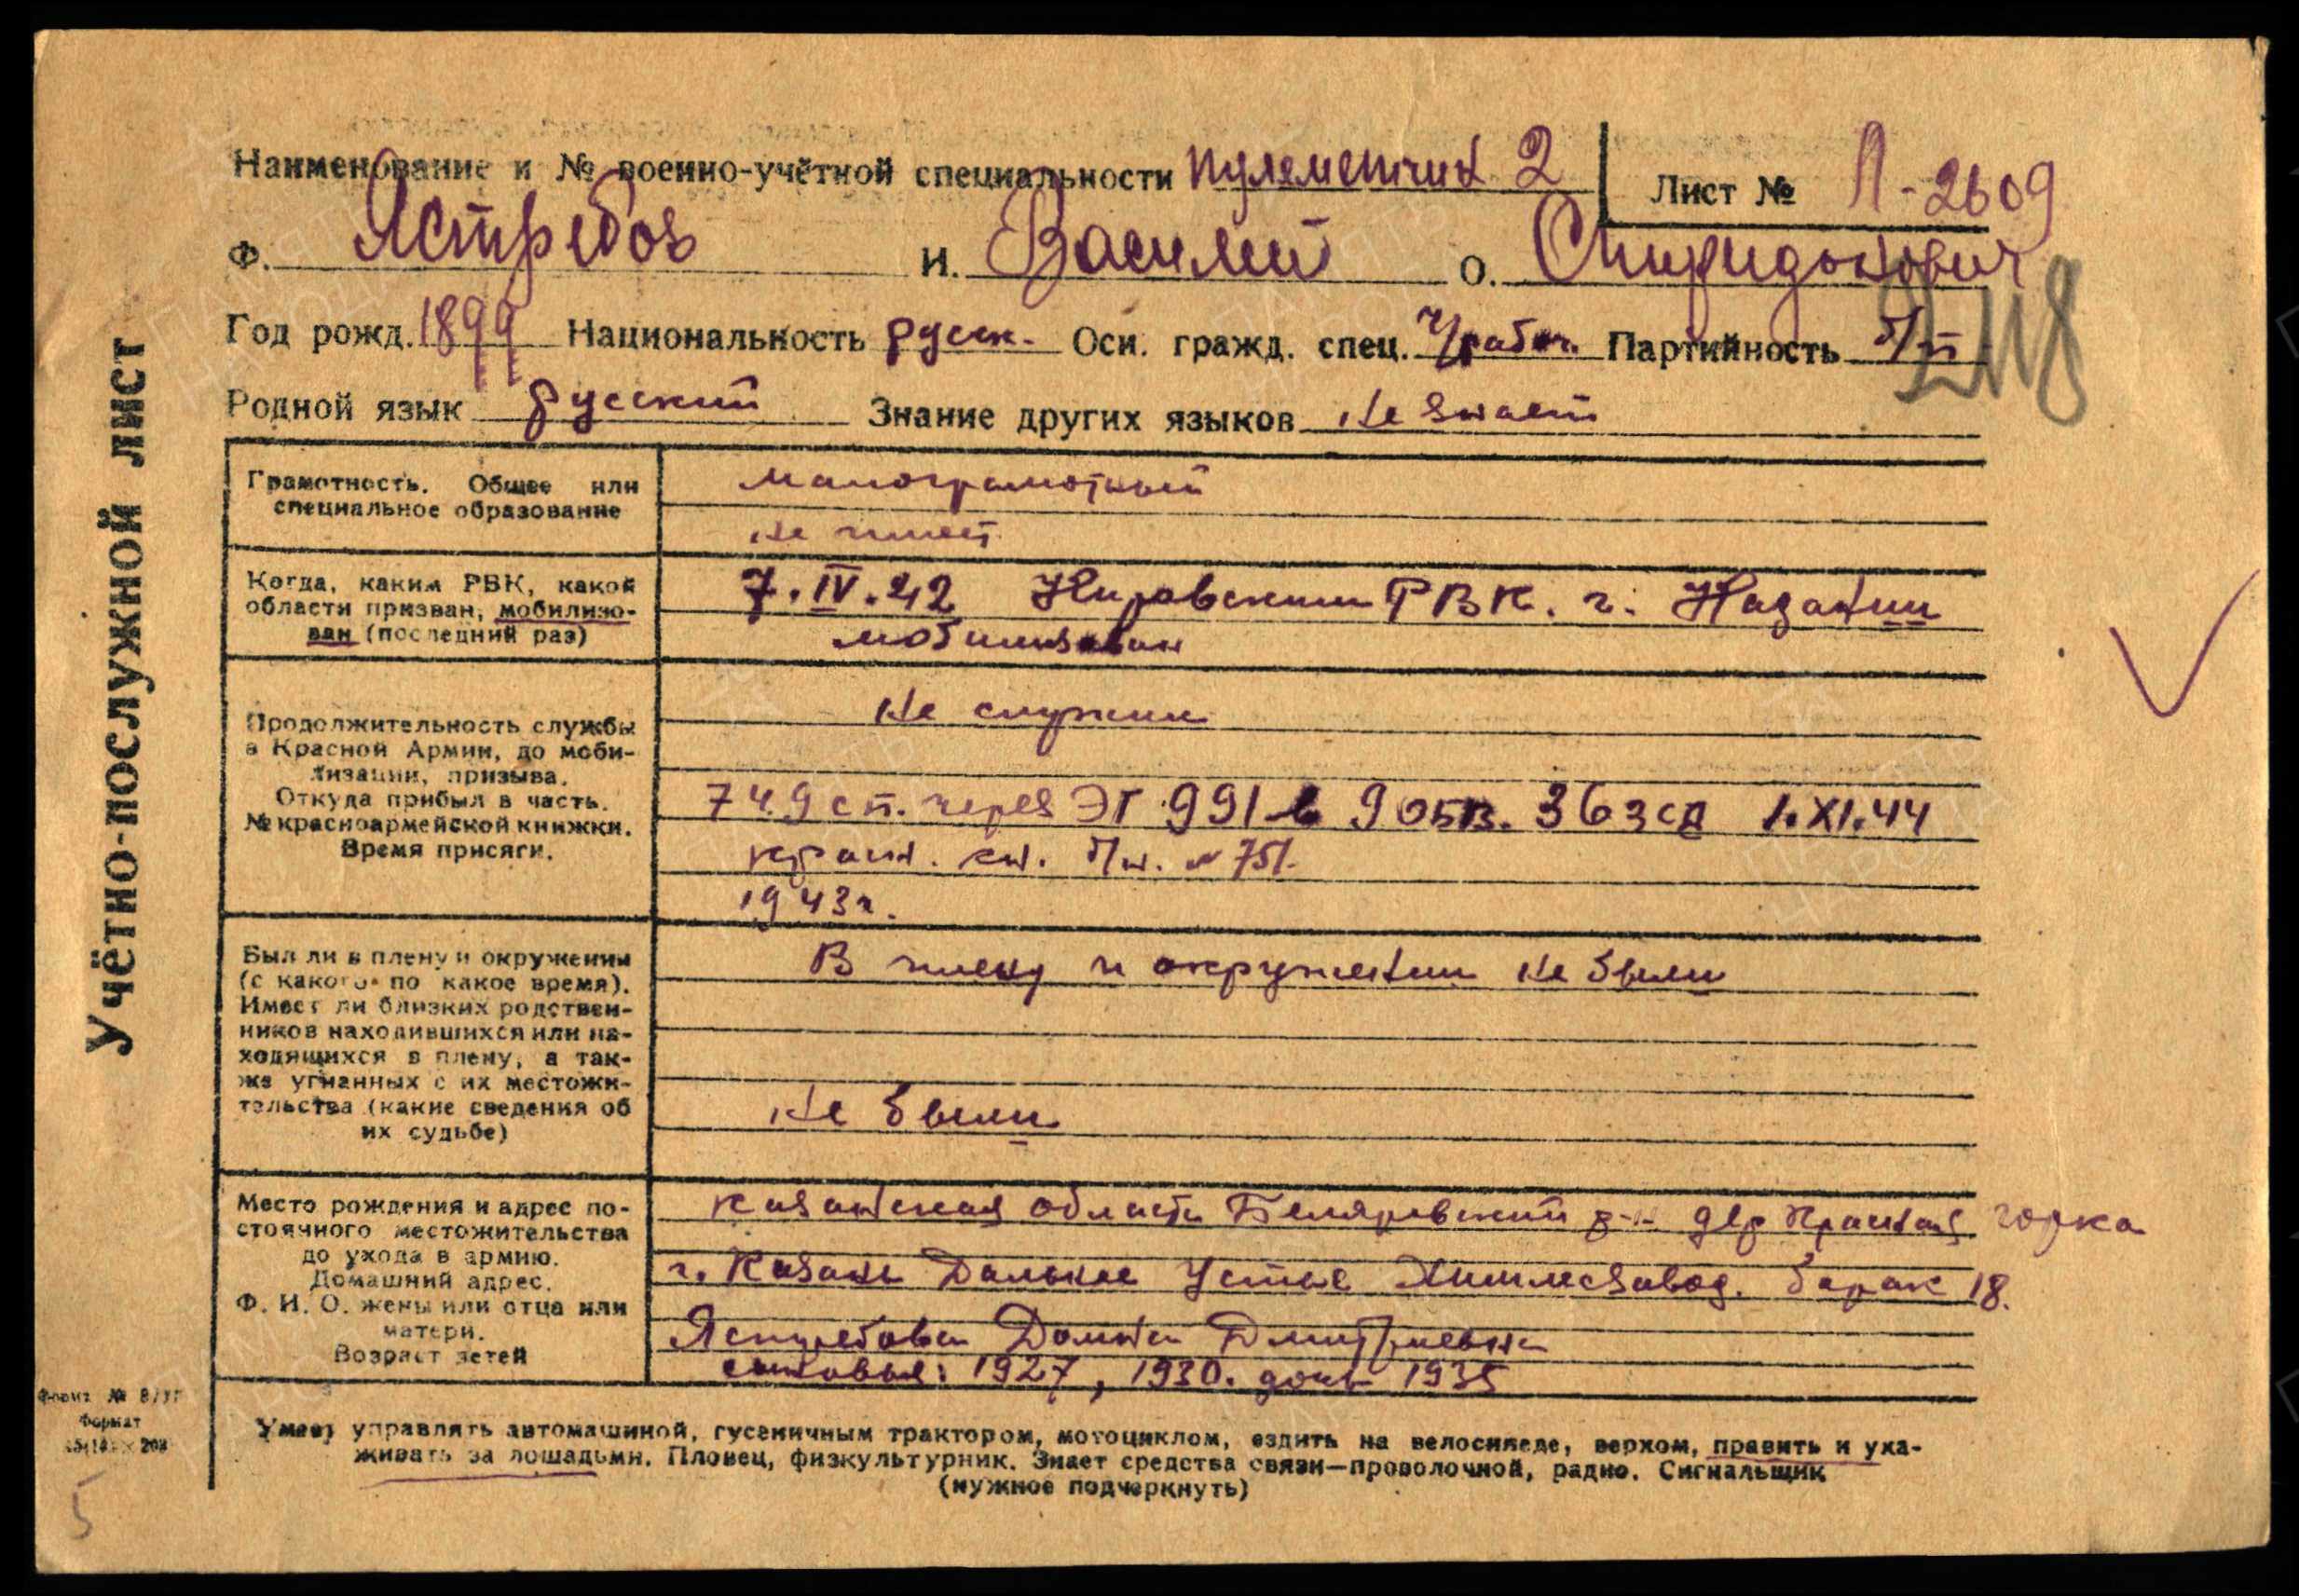 Учётно-послужной лист
Наименование и № военно-учётной специальности пулеметчик 2
Лист № Л-2609
Ф. Ястребов И. Василий О. Спиридонович
2118
Год рожд. 1899 Национальность русск. Осн. гражд. спец. ч/рабоч. Партийность б/п
Родной язык русский Знание других языков не знает
Грамотность. Общее или
специальное образование
малограмотный
не имеет
Когда, каким РВК, какой
области призван, мобилизо-
ван (последний раз)
7.IV.42 Кировским РВК. г. Казании
мобилизован
Продолжительность службы
в Красной Армии, до моби-
лизации, призыва.
Откуда прибыл в часть.
№ красноармейской книжки.
Время присяги.
не служил
749 сп. через ЭГ 991 в 9 363 сд 1.XI.44
красн. кн. б/н. № 751.
1943 г.
Был ли в плену и окружении
(с какого по какое время).
Имеет ли близких родствен-
ников находившихся или на-
ходящихся в плену, а так-
же угнанных с их местожи-
тельства (какие сведения об
их судьбе)
В плену и окружении не были
не были
Место рождения и адрес по-
стоячного местожительства
до ухода в армию.
Домашний адрес.
Ф. И. О. жены или отца или
матери.
Возраст детей
Казанская области Билярский р-н дер Красная горка
г. Казань Дальнее Устье завод. барак 18.
Ястребова Домна Дмитриевна
сыновья: 1927, 1930. дочь 1935
Форма № 8/УГ
Формат
208
Умеет управлять автомашиной, гусеничным трактором, мотоциклом, ездить на велосипеде, верхом, править и уха-
живать за лошадьми. Пловец, физкультурник. Знает средства связи—проволочной, радио. Сигнальщик
(нужное подчеркнуть)
5